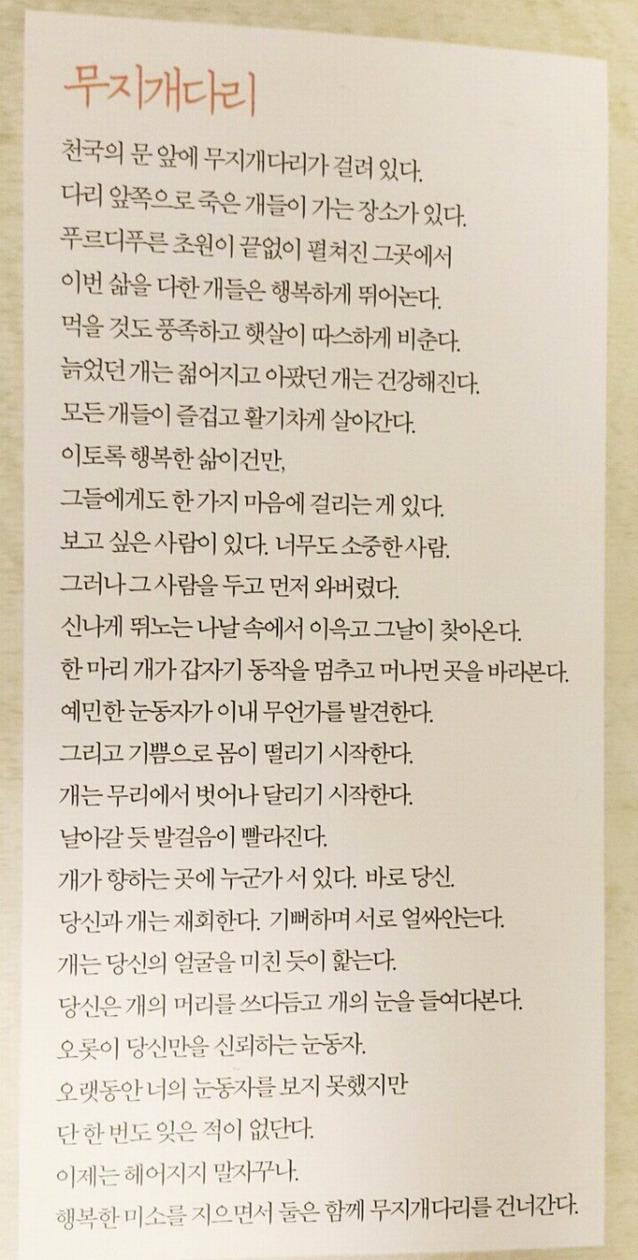 무지개다리
천국의 문 앞에 무지개다리가 걸려 있다.
다리 앞쪽으로 죽은 개들이 가는 장소가 있다.
푸르디푸른 초원이 끝없이 펼쳐진 그곳에서
이번 삶을 다한 개들은 행복하게 뛰어논다.
먹을 것도 풍족하고 햇살이 따스하게 비춘다.
늙었던 개는 젊어지고 아팠던 개는 건강해진다.
모든 개들이 즐겁고 활기차게 살아간다.
이토록 행복한 삶이건만,
그들에게도 한 가지 마음에 걸리는 게 있다.
보고 싶은 사람이 있다. 너무도 소중한 사람.
그러나 그 사람을 두고 먼저 와버렸다.
신나게 뛰노는 나날 속에서 이윽고 그날이 찾아온다.
한 마리 개가 갑자기 동작을 멈추고 머나먼 곳을 바라본다.
예민한 눈동자가 이내 무언가를 발견한다.
그리고 기쁨으로 몸이 떨리기 시작한다.
개는 무리에서 벗어나 달리기 시작한다.
날아갈 듯 발걸음이 빨라진다.
개가 향하는 곳에 누군가 서 있다. 바로 당신.
당신과 개는 재회한다. 기뻐하며 서로 얼싸안는다.
개는 당신의 얼굴을 미친 듯이 핥는다.
당신은 개의 머리를 쓰다듬고 개의 눈을 들여다본다.
오롯이 당신만을 신뢰하는 눈동자.
오랫동안 너의 눈동자를 보지 못했지만
단 한 번도 잊은 적이 없단다.
이제는 헤어지지 말자꾸나.
행복한 미소를 지으면서 둘은 함께 무지개다리를 건너간다.